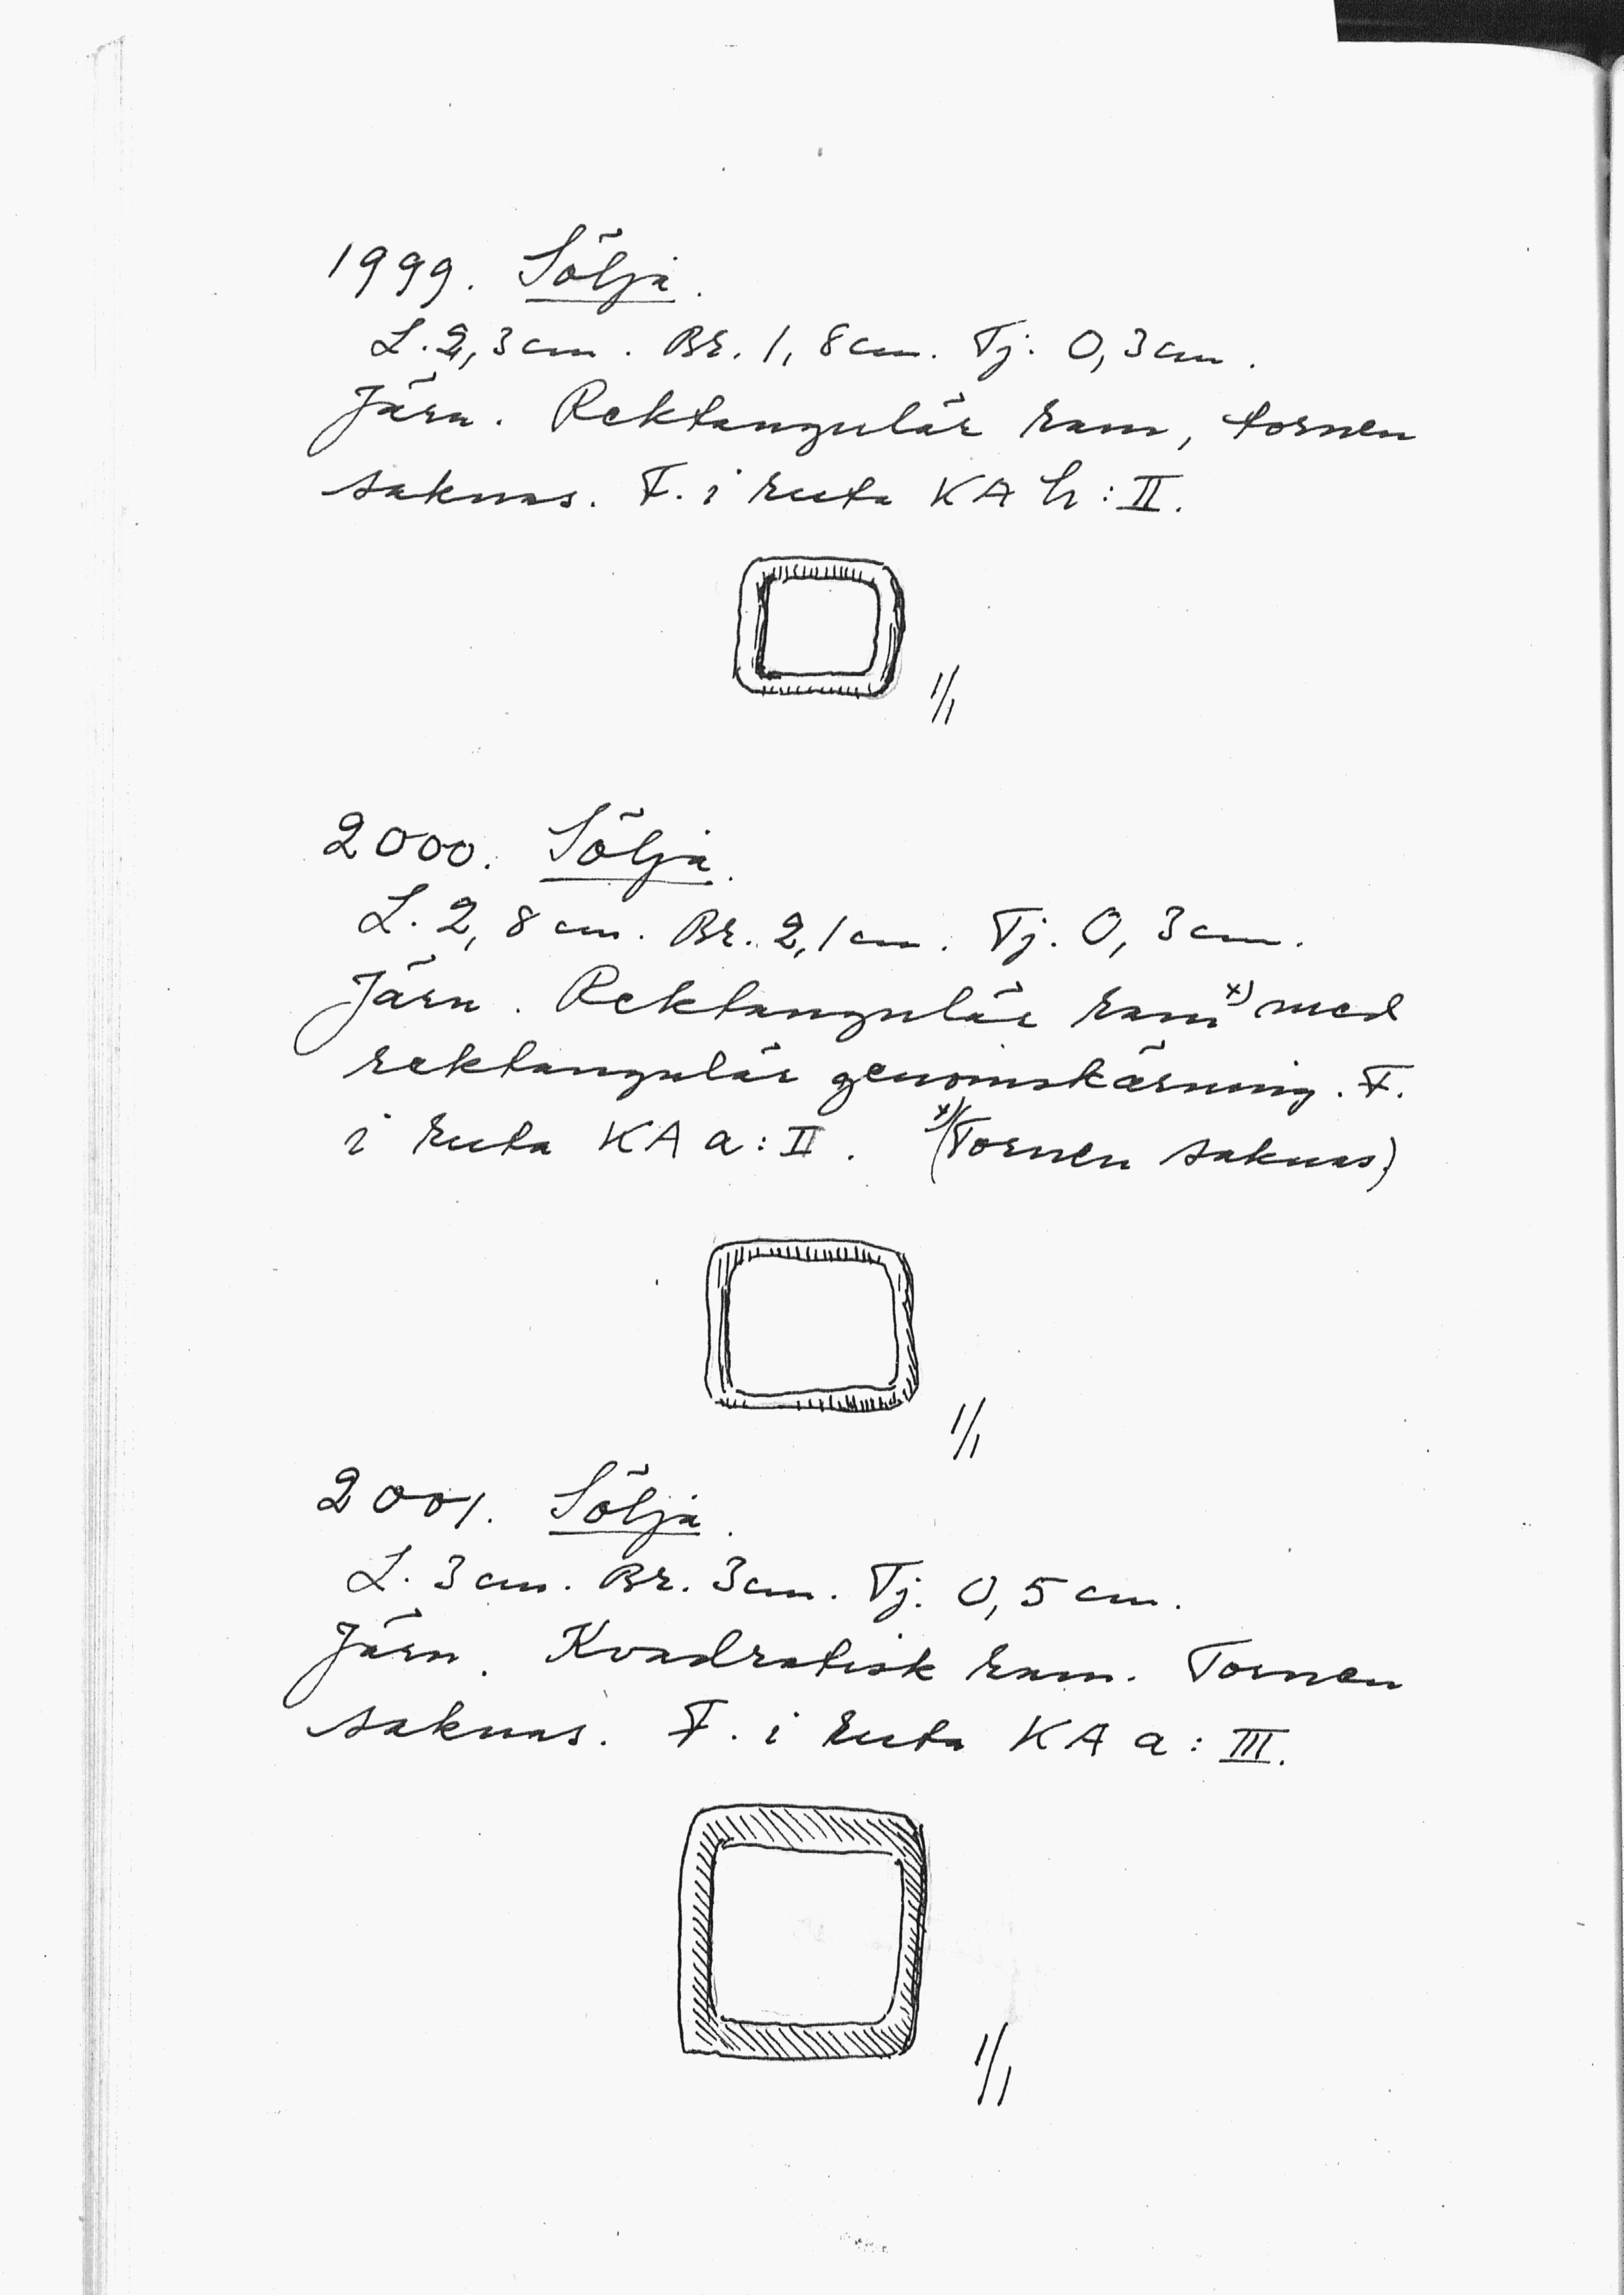 1999. Sölja.
L. 2,3 cm. Br. 1,8 cm. Tj. 0,3 cm.
Järn. Rektangulär ram, tornen
saknas. F. i ruta KA h : II.
1/1
2000. Sölja.
L. 2,8 cm. Br. 2,1 cm. Tj. 0,3 cm.
Järn. Rektangulär ram x) med
rektangulär genomskärning. F.
i ruta KA a : II. x) (Tornen saknas)
1/1
2001. Sölja.
L. 3 cm. Br. 3 cm. Tj. 0,5 cm.
Järn. Kvadratisk ram. Tornen
saknas. F. i ruta KA a : III.
1/1